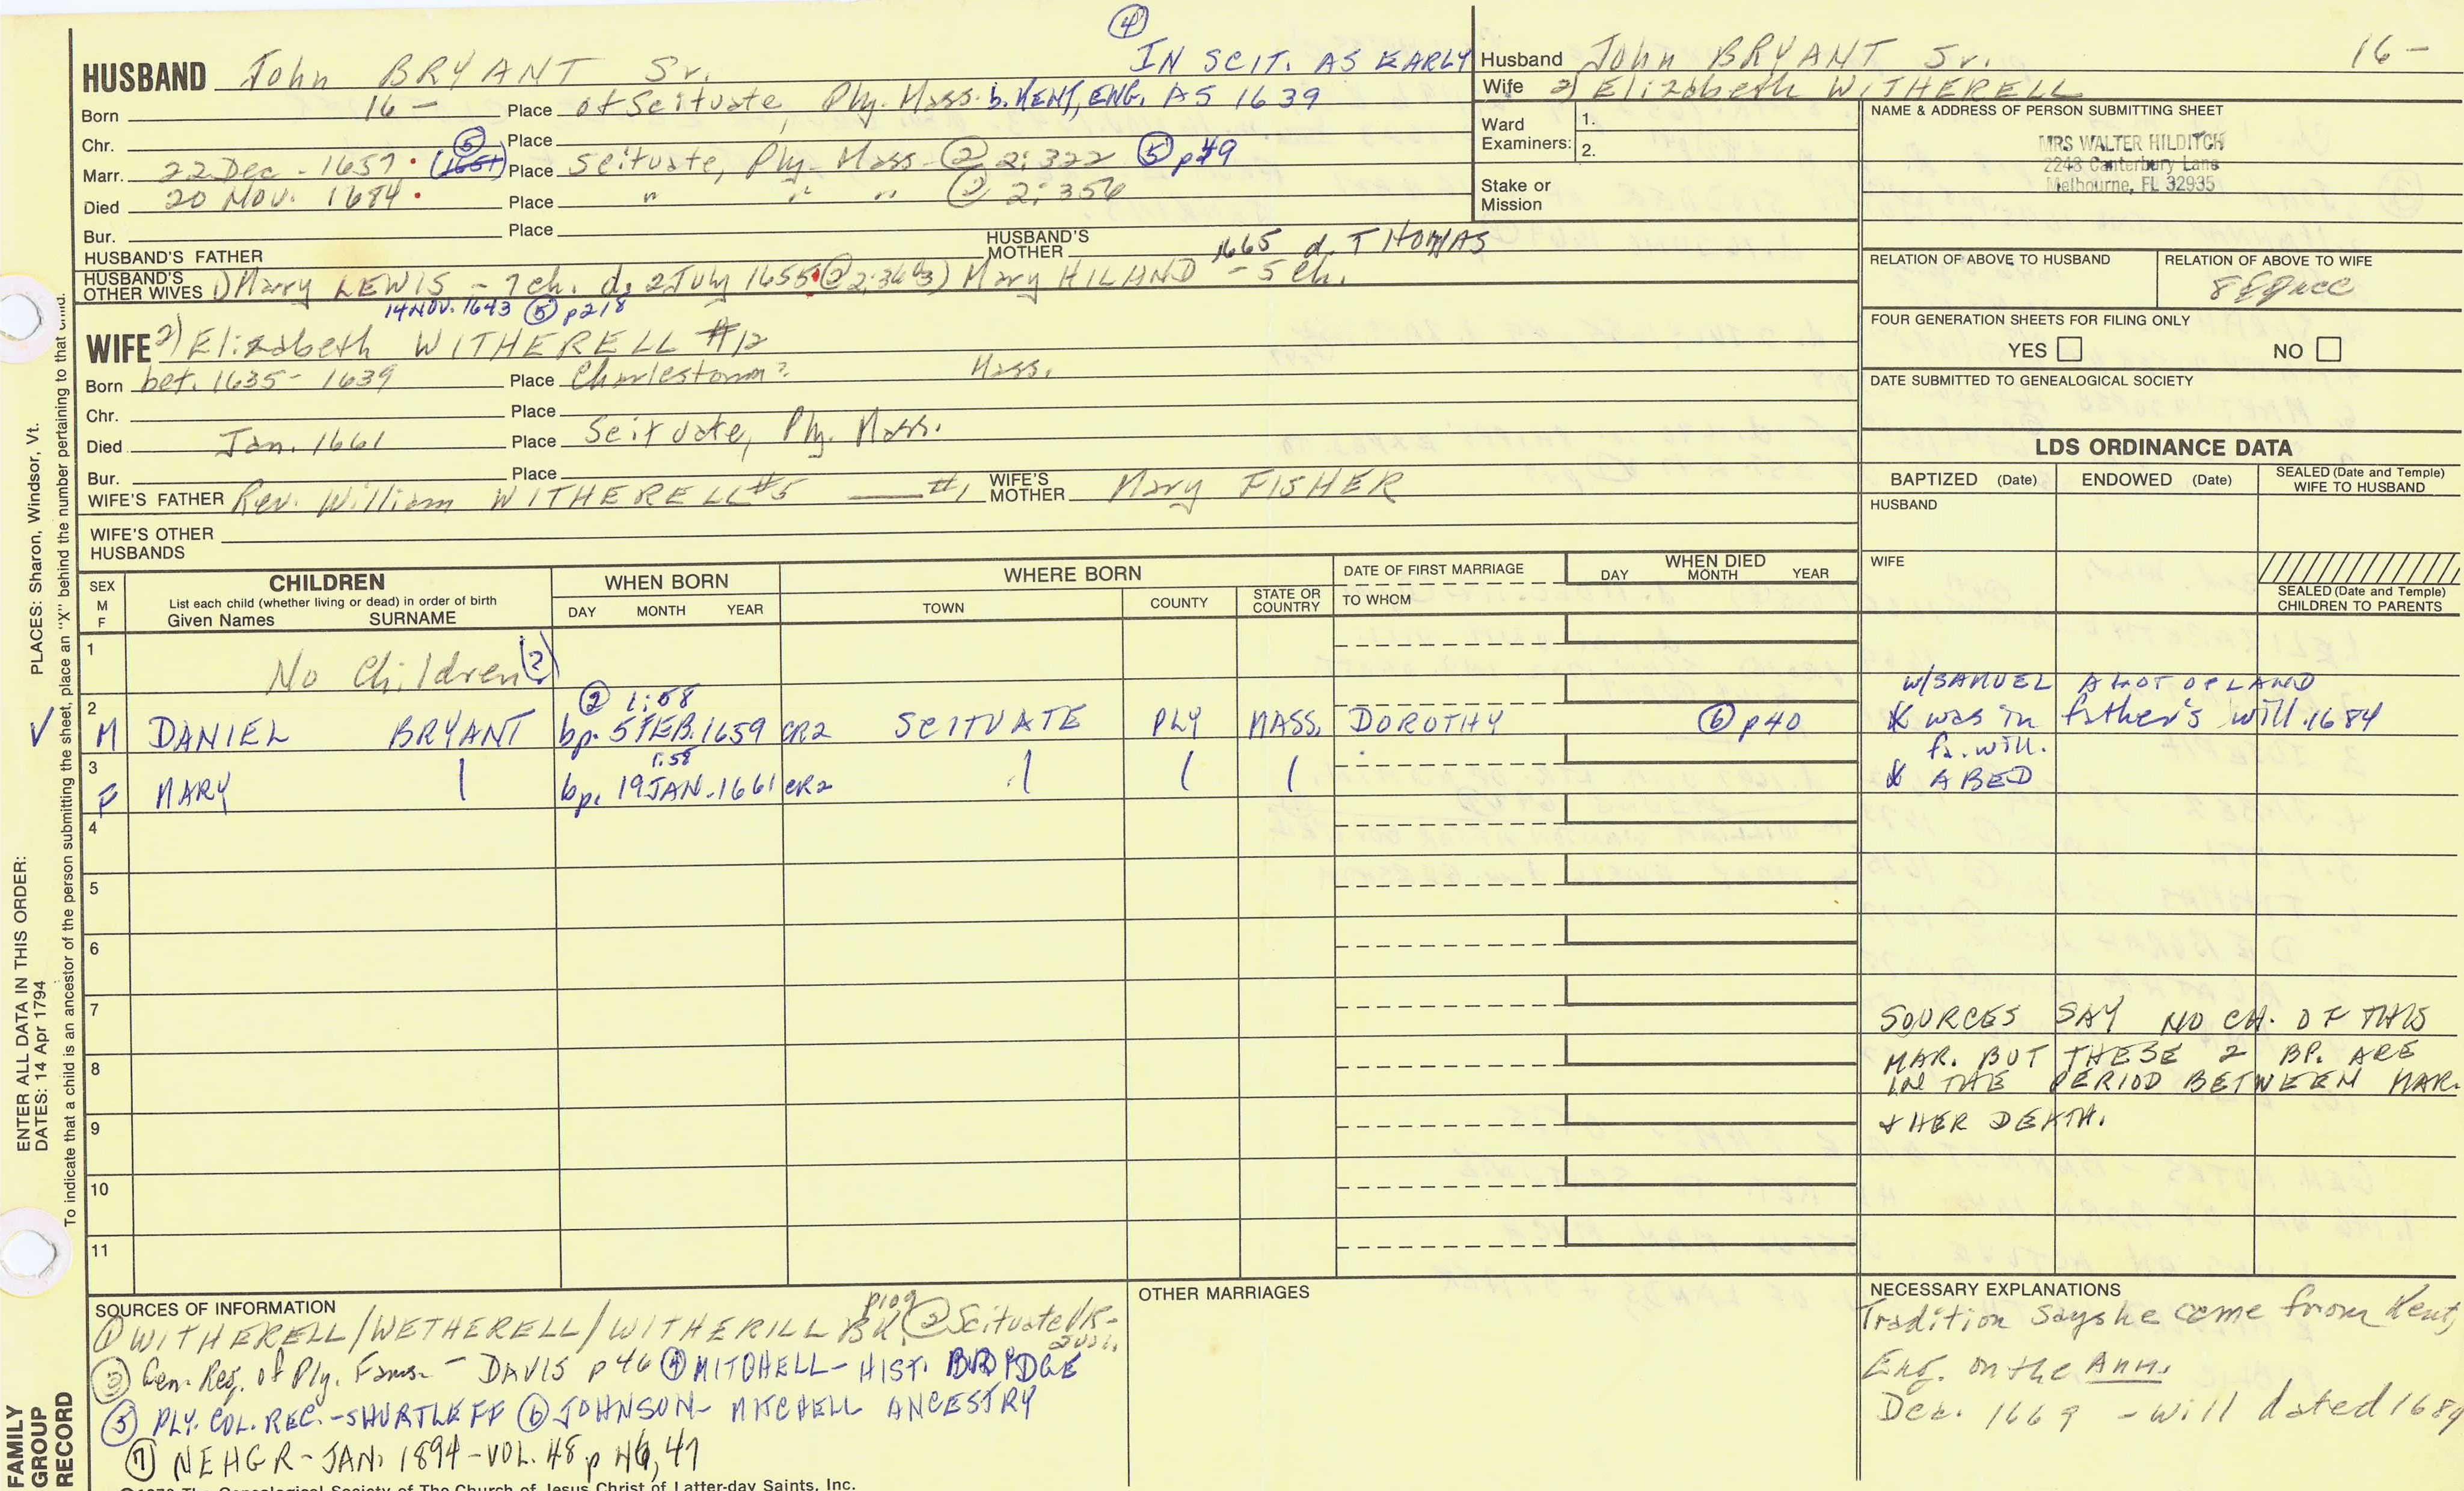 ④
HUSBAND John BRYANT Sr. IN SCIT. AS EARLY
Born 16- Place of Scituate, Ply. Mass. b. KENT, ENG. AS 1639
Chr. Place
Marr. 22 Dec - 1657 ⑤ (1651) Place Scituate, Ply. Mass ② 2:322 ⑤ p49
Died 20 Nov. 1684 Place " " " ② 2:356
Bur. Place
HUSBAND'S FATHER HUSBAND'S MOTHER
1665 d. THOMAS
HUSBAND'S OTHER WIVES 1) Marry LEWIS - 7 ch. d. 2 July 1655 3) Mary HILAND - 5 ch.
14 NOV. 1643 ⑤ p218
WIFE 2) Elizabeth WITHERELL #12
Born bet. 1635-1639 Place Charlestown? Mass.
Chr. Place
Died Jan. 1661 Place Scituate, Ply. Mass.
Bur. Place
WIFE'S FATHER Rev. William WITHERELL #5 #1 WIFE'S MOTHER Mary FISHER
WIFE'S OTHER HUSBANDS
Husband John BRYANT Sr. 16-
Wife 2) Elizabeth WITHERELL
Ward Examiners: 1.
2.
Stake or Mission
NAME & ADDRESS OF PERSON SUBMITTING SHEET
MRS WALTER HILDITCH
2243 Canterbury Lane
Melbourne, FL 32935
RELATION OF ABOVE TO HUSBAND RELATION OF ABOVE TO WIFE
FOUR GENERATION SHEETS FOR FILING ONLY
YES NO
DATE SUBMITTED TO GENEALOGICAL SOCIETY
LDS ORDINANCE DATA
BAPTIZED (Date) ENDOWED (Date) SEALED (Date and Temple) WIFE TO HUSBAND
HUSBAND
WIFE
SEALED (Date and Temple) CHILDREN TO PARENTS
SEX M F
CHILDREN
List each child (whether living or dead) in order of birth
Given Names SURNAME
WHEN BORN
DAY MONTH YEAR
WHERE BORN
TOWN COUNTY STATE OR COUNTRY
DATE OF FIRST MARRIAGE
TO WHOM
WHEN DIED
DAY MONTH YEAR
1 No Children (?)
② 1:58
2 M DANIEL BRYANT bp. 5 FEB. 1659 CR2 SCITUATE PLY MASS. DOROTHY ⑥ p40
w/SAMUEL A LOT OF LAND
was in father's will. 1684
1:58
3 F MARY | bp. 19 JAN. 1661 CR2 | | |
fa. will.
A BED
4
5
6
7
8
9
10
11
SOURCES SAY NO CH. OF THIS
MAR. BUT THESE 2 BP. ARE
IN THE PERIOD BETWEEN MAR.
+ HER DEATH.
SOURCES OF INFORMATION
① WITHERELL/WETHERELL/WITHERILL BK. p109 ② Scituate VR-
③ Gen. Reg. of Ply. Fams. - DAVIS p46 ④ MITCHELL - HIST. BRIDGE
⑤ PLY. COL. REC. - SHURTLEFF ⑥ JOHNSON - MITCHELL ANCESTRY
⑦ NEHGR - JAN. 1894 - VOL. 48 p 46, 47
OTHER MARRIAGES
NECESSARY EXPLANATIONS
Tradition says he came from Kent,
Eng. on the Ann.
Dec. 1669 - will dated 1684
PLACES: Sharon, Windsor, Vt.
ENTER ALL DATA IN THIS ORDER:
DATES: 14 Apr 1794
To indicate that a child is an ancestor of the person submitting the sheet, place an "X" behind the number pertaining to that child.
FAMILY GROUP RECORD
The Genealogical Society of The Church of Jesus Christ of Latter-day Saints, Inc.